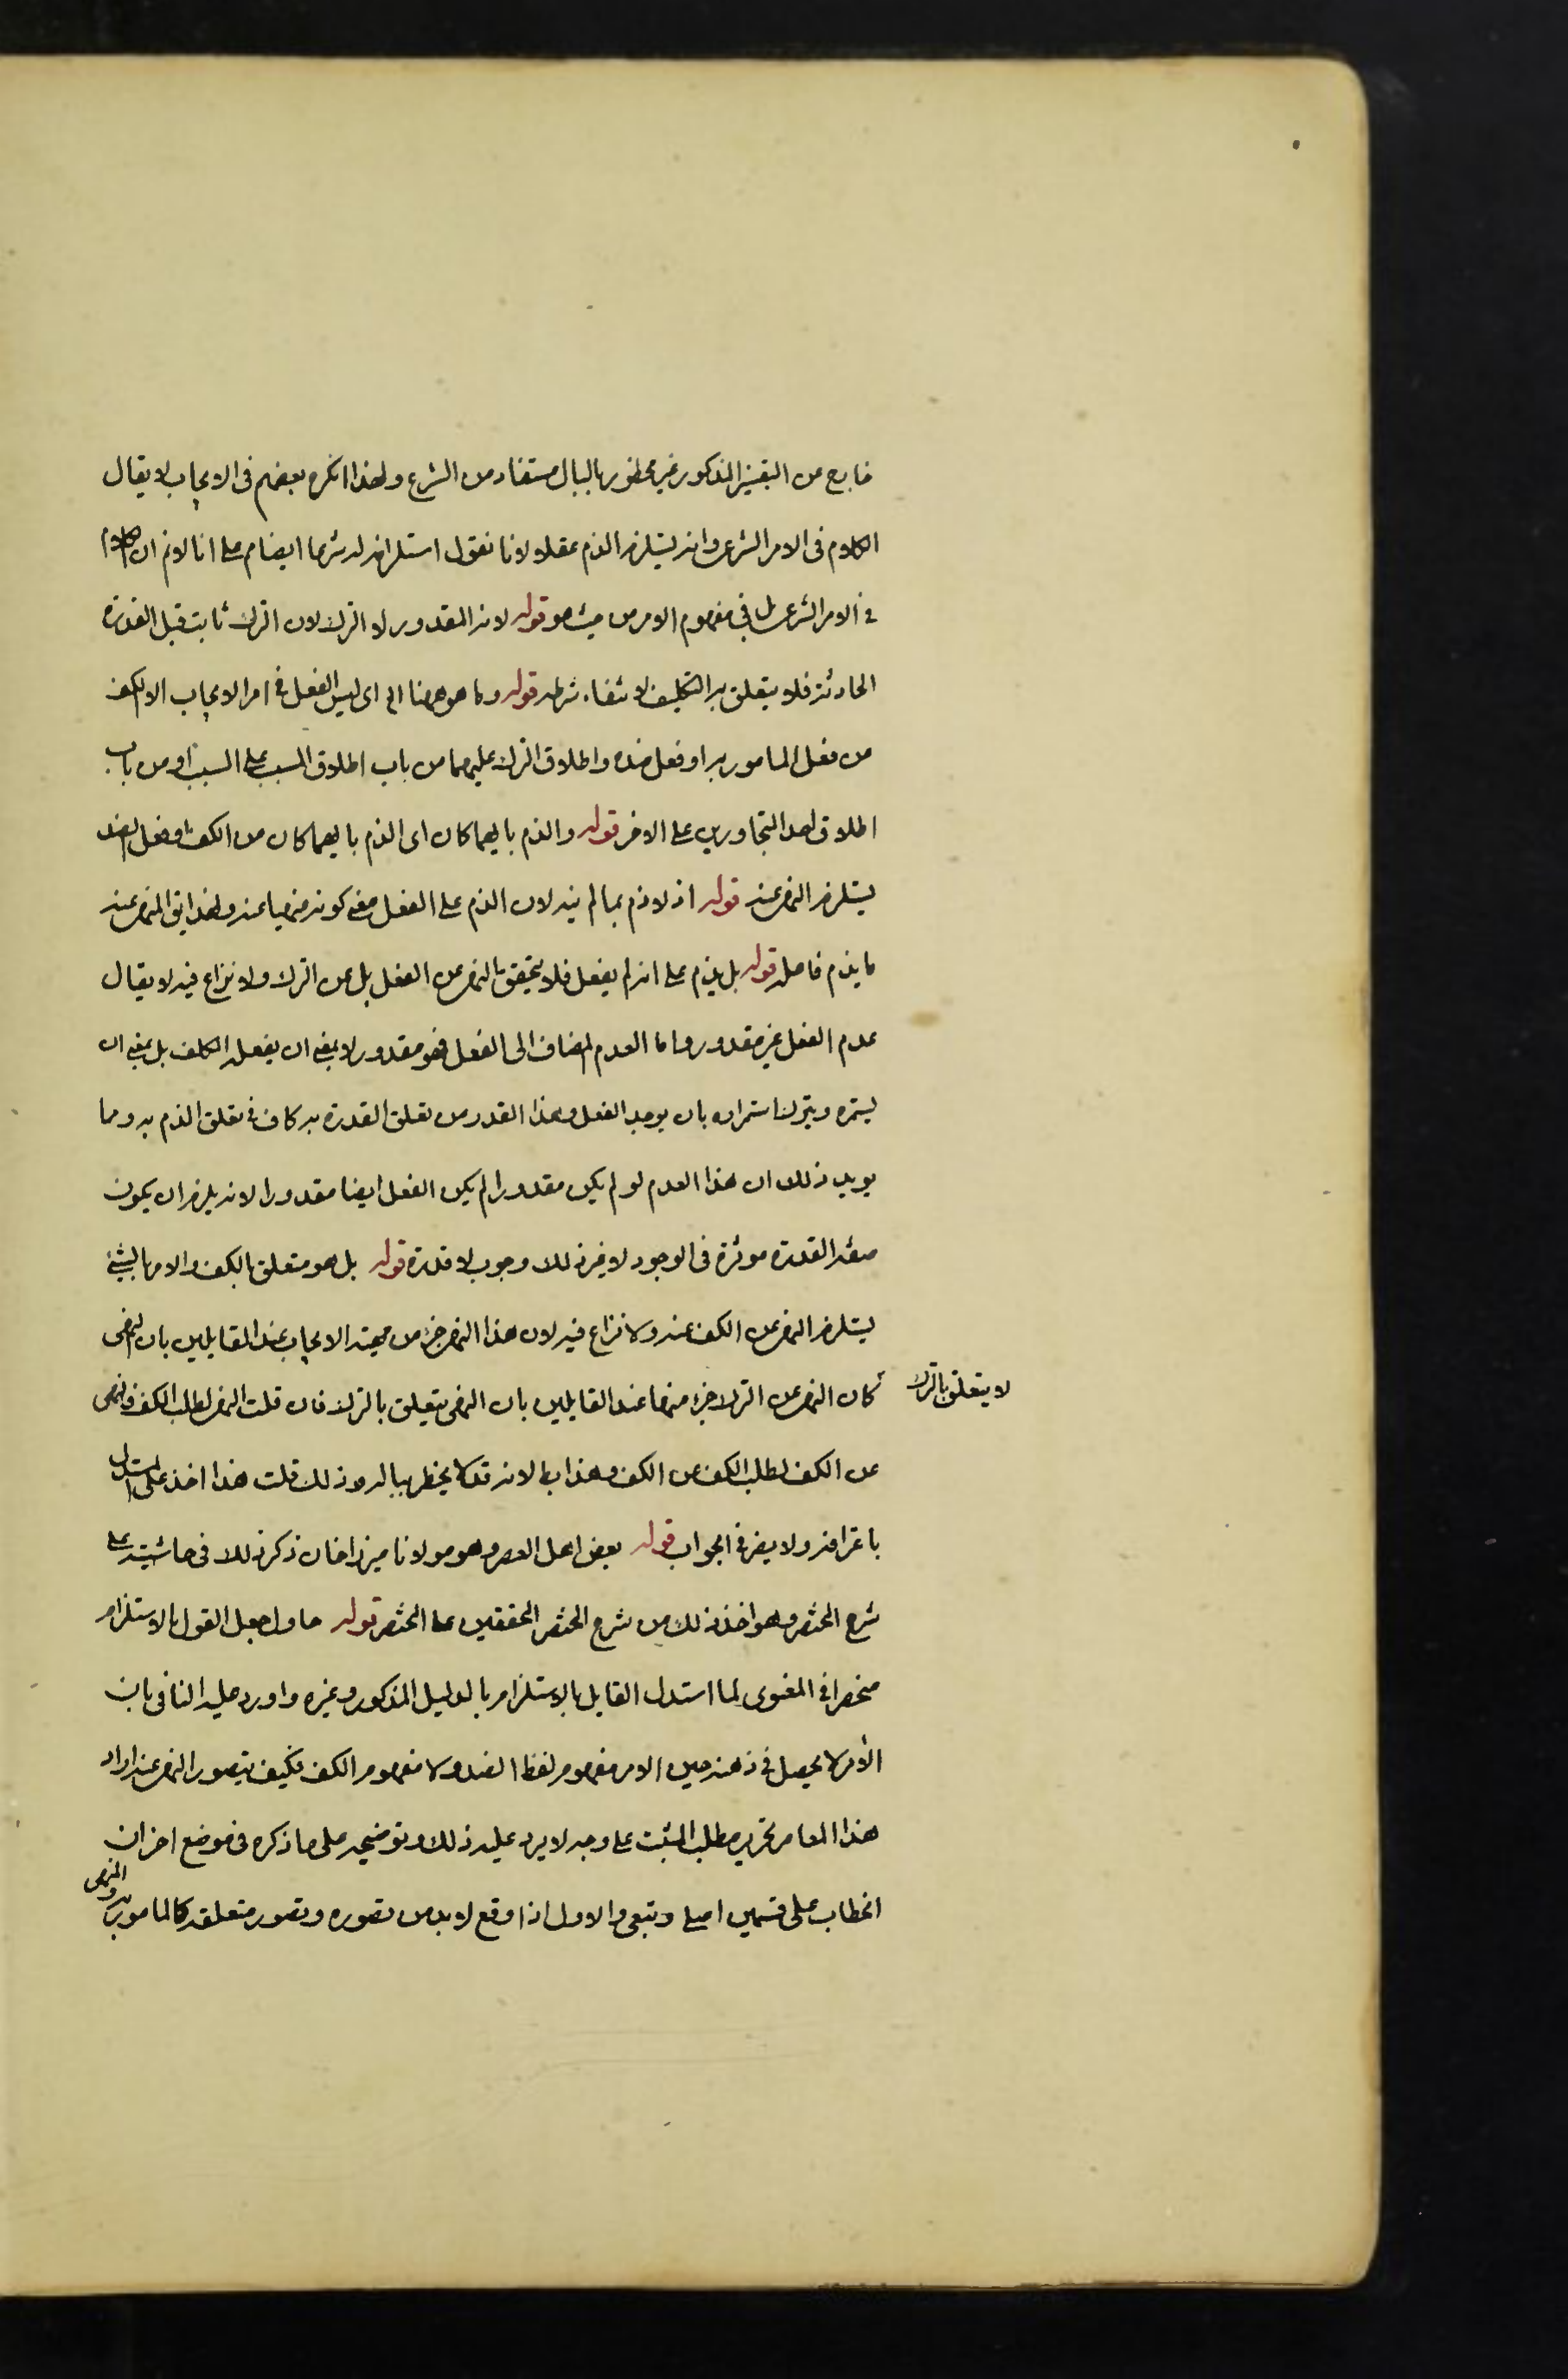 خارج عن اليقين المذكور غير مخطور بالبال مستفاد من الشرع ولهذا انكره بعضهم فى الايجاب لا يقال
الكلام فى الامر الشرعى وانه يستلزم الذم عقلا لانا نقول استلزامه له شرعا ايضا م على انا لا نم ان الكلام
فى الامر الشرعى بل فى مفهوم الامر من حيث هو قوله لانه المقدور لا الترك لان الترك ثابت قبل القدرة
الحادثة فلا يتعلق به التكليف لانتفاء شرطه قوله وما هو ههنا الخ اى ليس الفعل فى امر الايجاب الا الكف
من فعل المامور به او فعل ضده واطلاق الترك عليهما من باب اطلاق المسبب على السبب او من باب
اطلاق احد المتجاورين على الاخر قوله والذم بايهما كان اى الذم بايهما كان من الكف او فعل الضد
يستلزم النهى عنه قوله اذ لا ذم بما لم ينه لان الذم على الفعل معنى كونه منهيا عنه ولهذا يق المنهى عنه
ما يذم فاعله قوله بل يذم على انه لم يفعل فلا يتحقق النهى عن الفعل بل عن الترك ولا نزاع فيه لا يقال
عدم الفعل غير مقدور واما العدم المضاف الى الفعل فهو مقدور لا بمعنى ان يفعله المكلف بل بمعنى ان
يستمره ويترك استمراره بان يوجد الفعل وهذا القدر من تعلق القدرة به كاف فى تعلق الذم به ومما
يويد ذلك ان هذا العدم لو لم يكن مقدورا لم يكن الفعل ايضا مقدورا لانه يلزم ان يكون
صفة القدرة موثرة فى الوجود لا غير ذلك وجوب لا قدرة قوله بل هو متعلق بالكف والامر بالشئ
يستلزم النهى عن الكف عنه ولا نزاع فيه لان هذا النهى جزء من مهية الايجاب عند القايلين بان النهى
لا يتعلق بالترك
كان النهى عن الترك جزء منها عند القايلين بان النهى يتعلق بالترك فان قلت النهى لطلب الكف فالنهى
عن الكف لطلب الكف عن الكف وهذا بط لانه قد لا يخطر بباله وذلك قلت هذا اخذ على المستدل
باعترافه ولا يضر فى الجواب قوله بعض اهل العصر وهو مولانا ميرزاخان ذكر ذلك فى حاشيته على
شرح المختصر وهو اخذ ذلك من شرح المختصر المحققين على المختصر قوله حاول جعل القول بالاستلزام
منحصرا فى المعنوى لما استدل القايل بالاستلزام بالدليل المذكور وغيره واورد عليه النافى بان
الامر لا يحصل فى ذهنه حين الامر مفهوم لفظ الضد ولا مفهوم الكف فكيف يتصور النهى عنه اراد
هذا المعاصر تحرير مطلب المثبت على وجه لا يرد عليه ذلك وتوضيحه على ما ذكره فى موضع اخر ان
الخطاب على قسمين اصلى وتبعى والاول اذا وقع لا بد من تصوره وتصور متعلقه كالمامور به والنهى